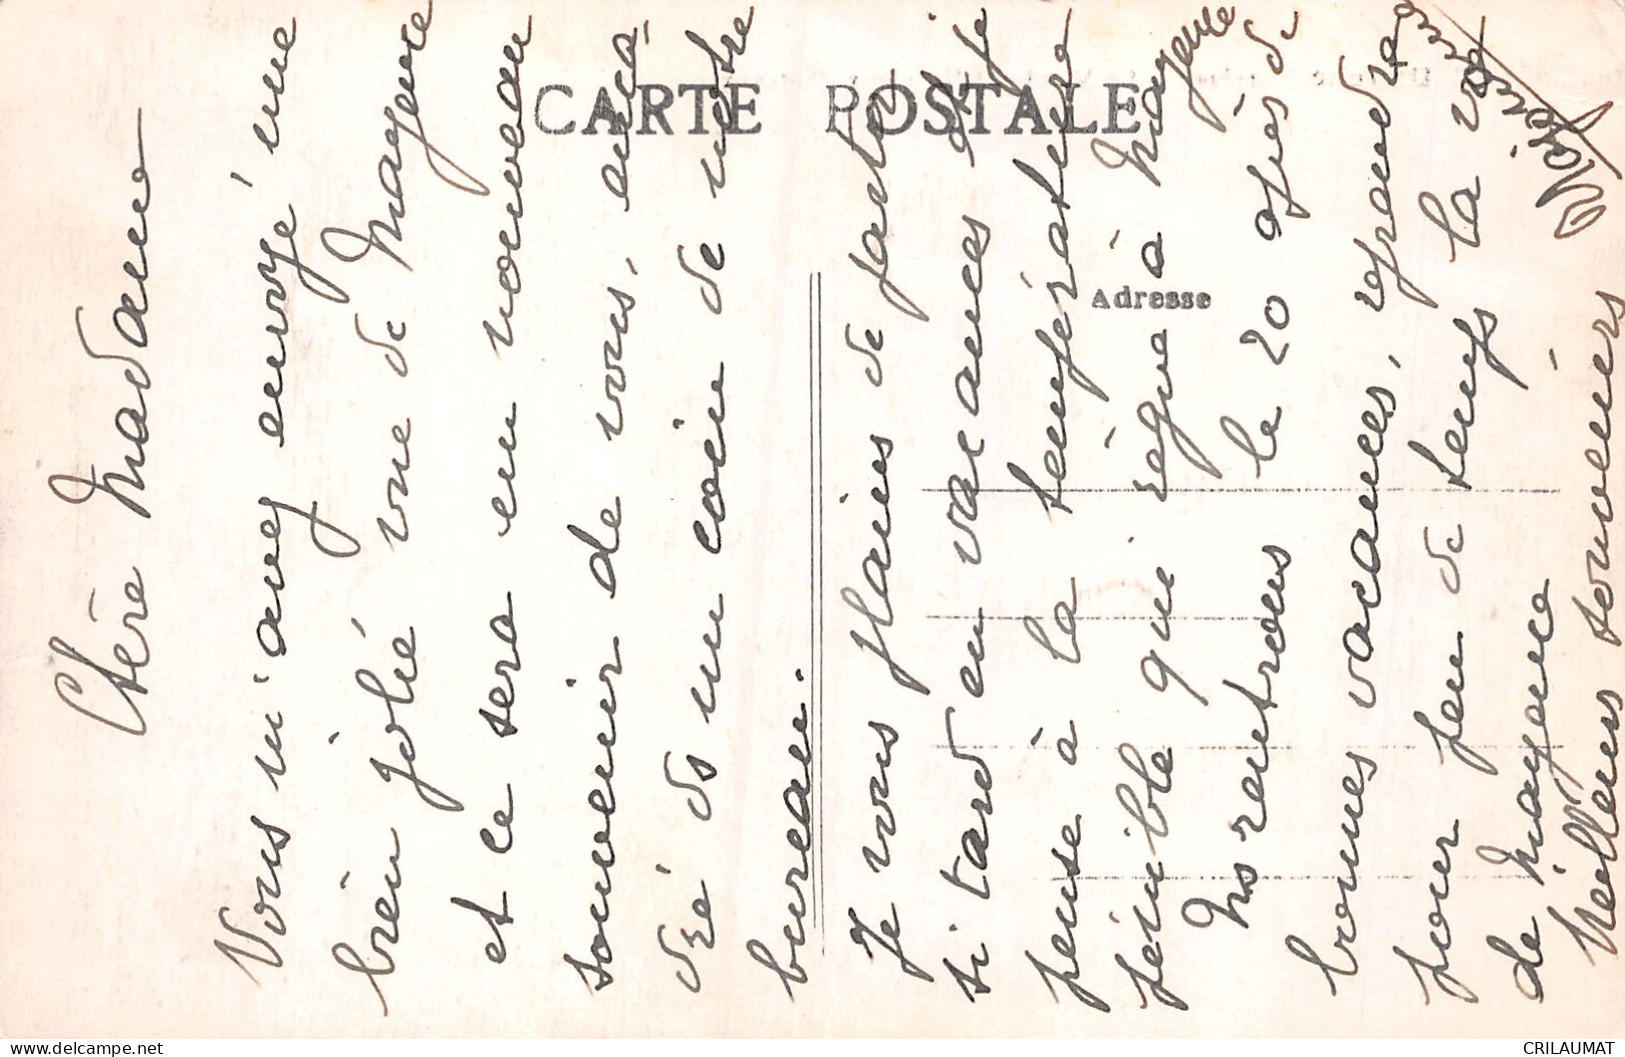 CARTE POSTALE
Adresse
Chère Madame
Vous m'avez envoyé une
bien jolie vue de Mayenne
et ce sera un nouveau
souvenir de vous, enca-
dré ds un coin de notre
bureau.
Je vous plains de partir
si tard en vacances et je
pense à la température
pénible qui règne à Mayenne
Ns rentrons le 20 après de
bonnes vacances, reprendre
pour peu de temps la vie
de Mayence
Meilleurs souvenirs
CRILAUMAT